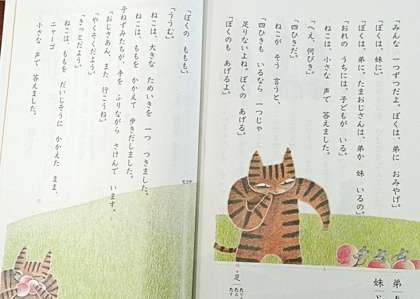 「みんな 一つずつだよ。ぼくは、弟に おみやげ。」
「ぼくは、妹に。」
「ぼくは、弟に。たまおじさんは、弟か 妹 いるの。」
「おれの うちには、子どもが いる。」
ねこは、小さな 声で 答えました。
「へえ、何びき。」
「四ひきだ。」
ねこが そう 言うと、
「四ひきも いるなら 一つじゃ
足りないよね。ぼくの あげる。」
「ぼくのも あげるよ。」
弟
妹
足
「ぼくの ももも。」
「ううむ。」
ねこは、大きな ためいきを 一つ つきました。
ねこは、ももを かかえて 歩きだしました。
子ねずみたちが、手を ふりながら さけんで います。
「おじさあん、また 行こうね。」
「やくそくだよう。」
「きっとだよう。」
ねこは、ももを だいじそうに かかえた まま、
ニャーゴ
小さな 声で 答えました。